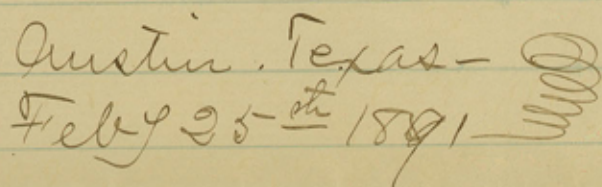 Austin. Texas—
Feby 25th 1891